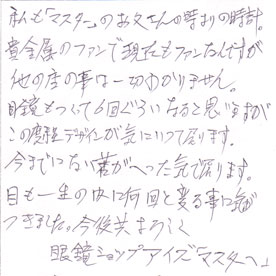 私も「マスター」のお父さんの時よりの時計。
貴金属のファンで現在もファンなんですが
他の店の事は一切わかりません。
眼鏡もつくって6回ぐらいなると思いますが
この度デザインが気にいって居ります。
今までにない若がへった気で居ります。
目も一生の中に何回と変る事に気が
つきました。今後共よろしく
眼鏡ショップアイズ「マスターへ」